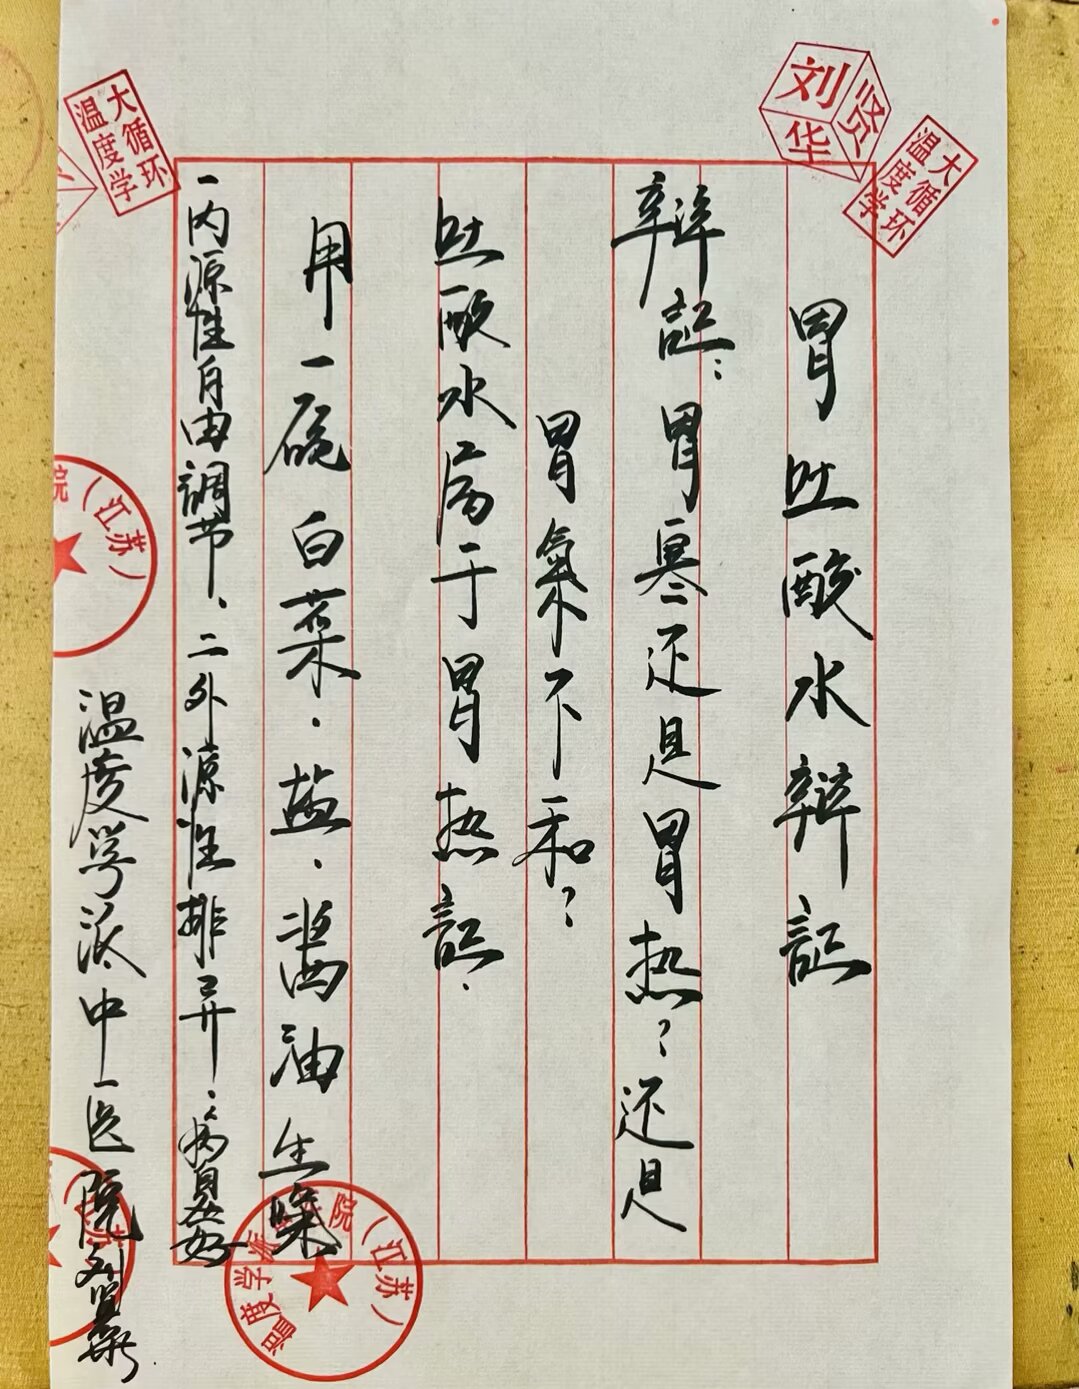 胃吐酸水辩証
辩証：胃寒还是胃热？还是
胃氣不和？
吐酸水属于胃热証．
用一碗白菜．盐．酱油生
一内源性自由调节、二外源性排异．病易好
温度学派中医院刘贤华
刘贤华
大循环
温度学
大循环
温度学
院（江苏）
温度学派 院（江苏）